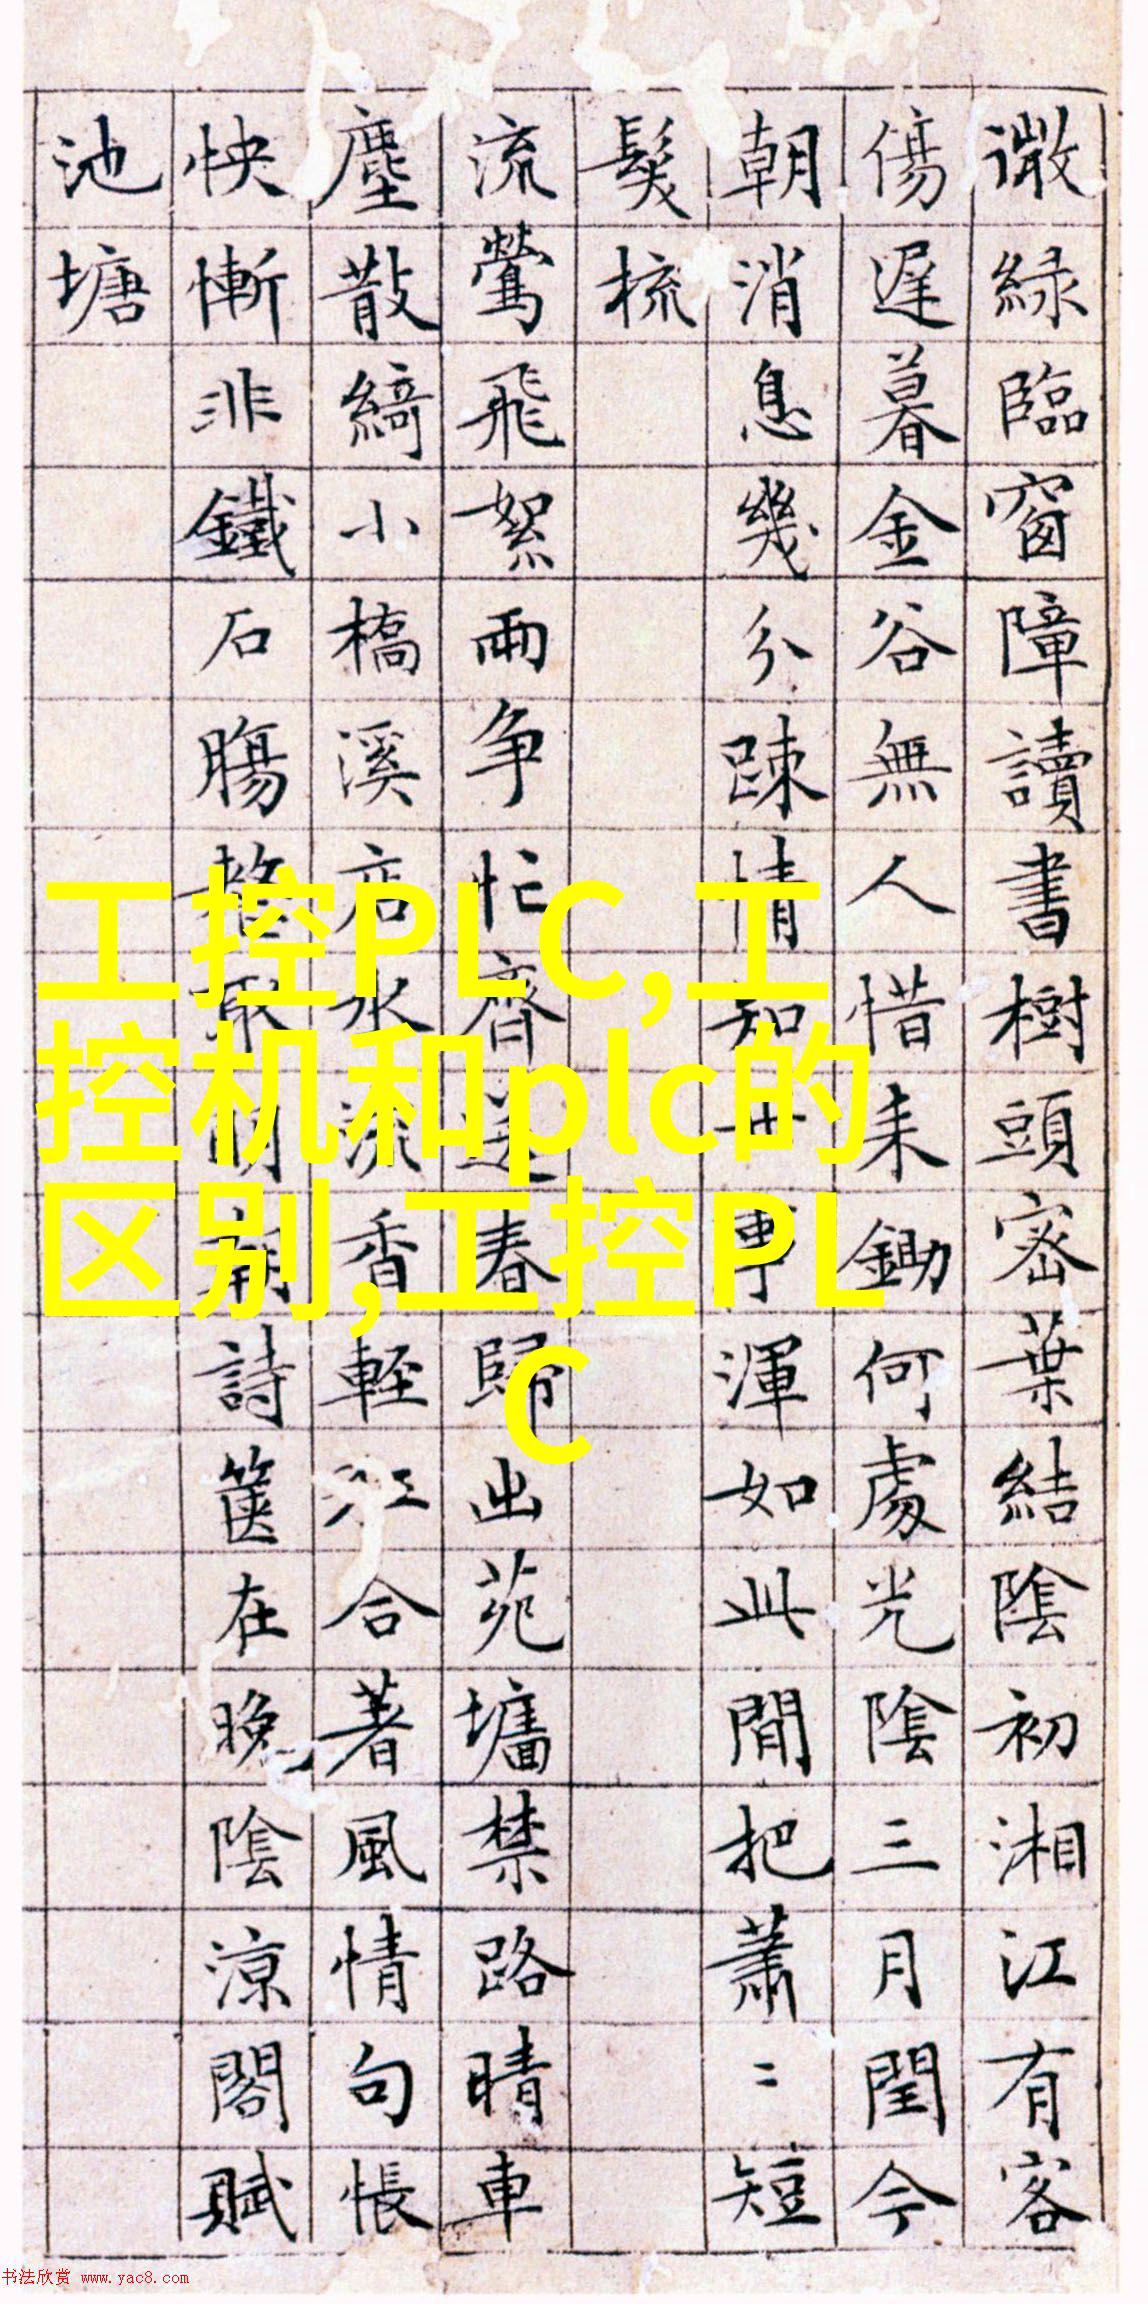 微綠臨窗障讀書樹頭密葉結陰初湘江有客
傷遲暮金谷無人惜耒鋤何處光陰三月閏今
朝消息幾分踈情知世事渾如此閒把蕭〻短
髮梳
流鶯飛絮兩争忙齊送春歸出苑墻禁路晴車
塵散綺小橋溪店水流香輕紅合著風情句悵
怏慚非鐵石腸整取明朝詩篋在晚陰涼閣賦
池塘
工控PLC,工
控机和plc的
区别,工控PL
C
书法欣赏 www.yac8.com